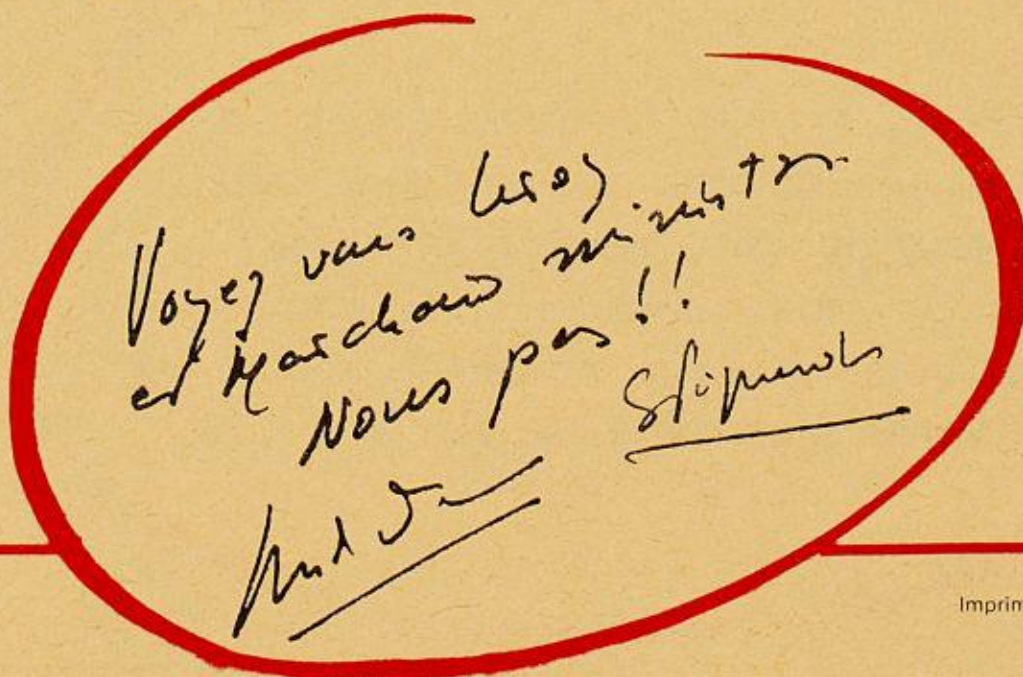 Voyez vous Leroy
et Marchais ministres
Nous pas !!
Imprim